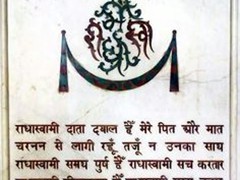 राधास्वामी दाता दयाल हैं मेरे पित और मात
चरनन से लागी रहूँ तजूँ न उनका साथ
राधास्वामी समथ पुर्ष हैं राधास्वामी सच करतार
राधास्वामी